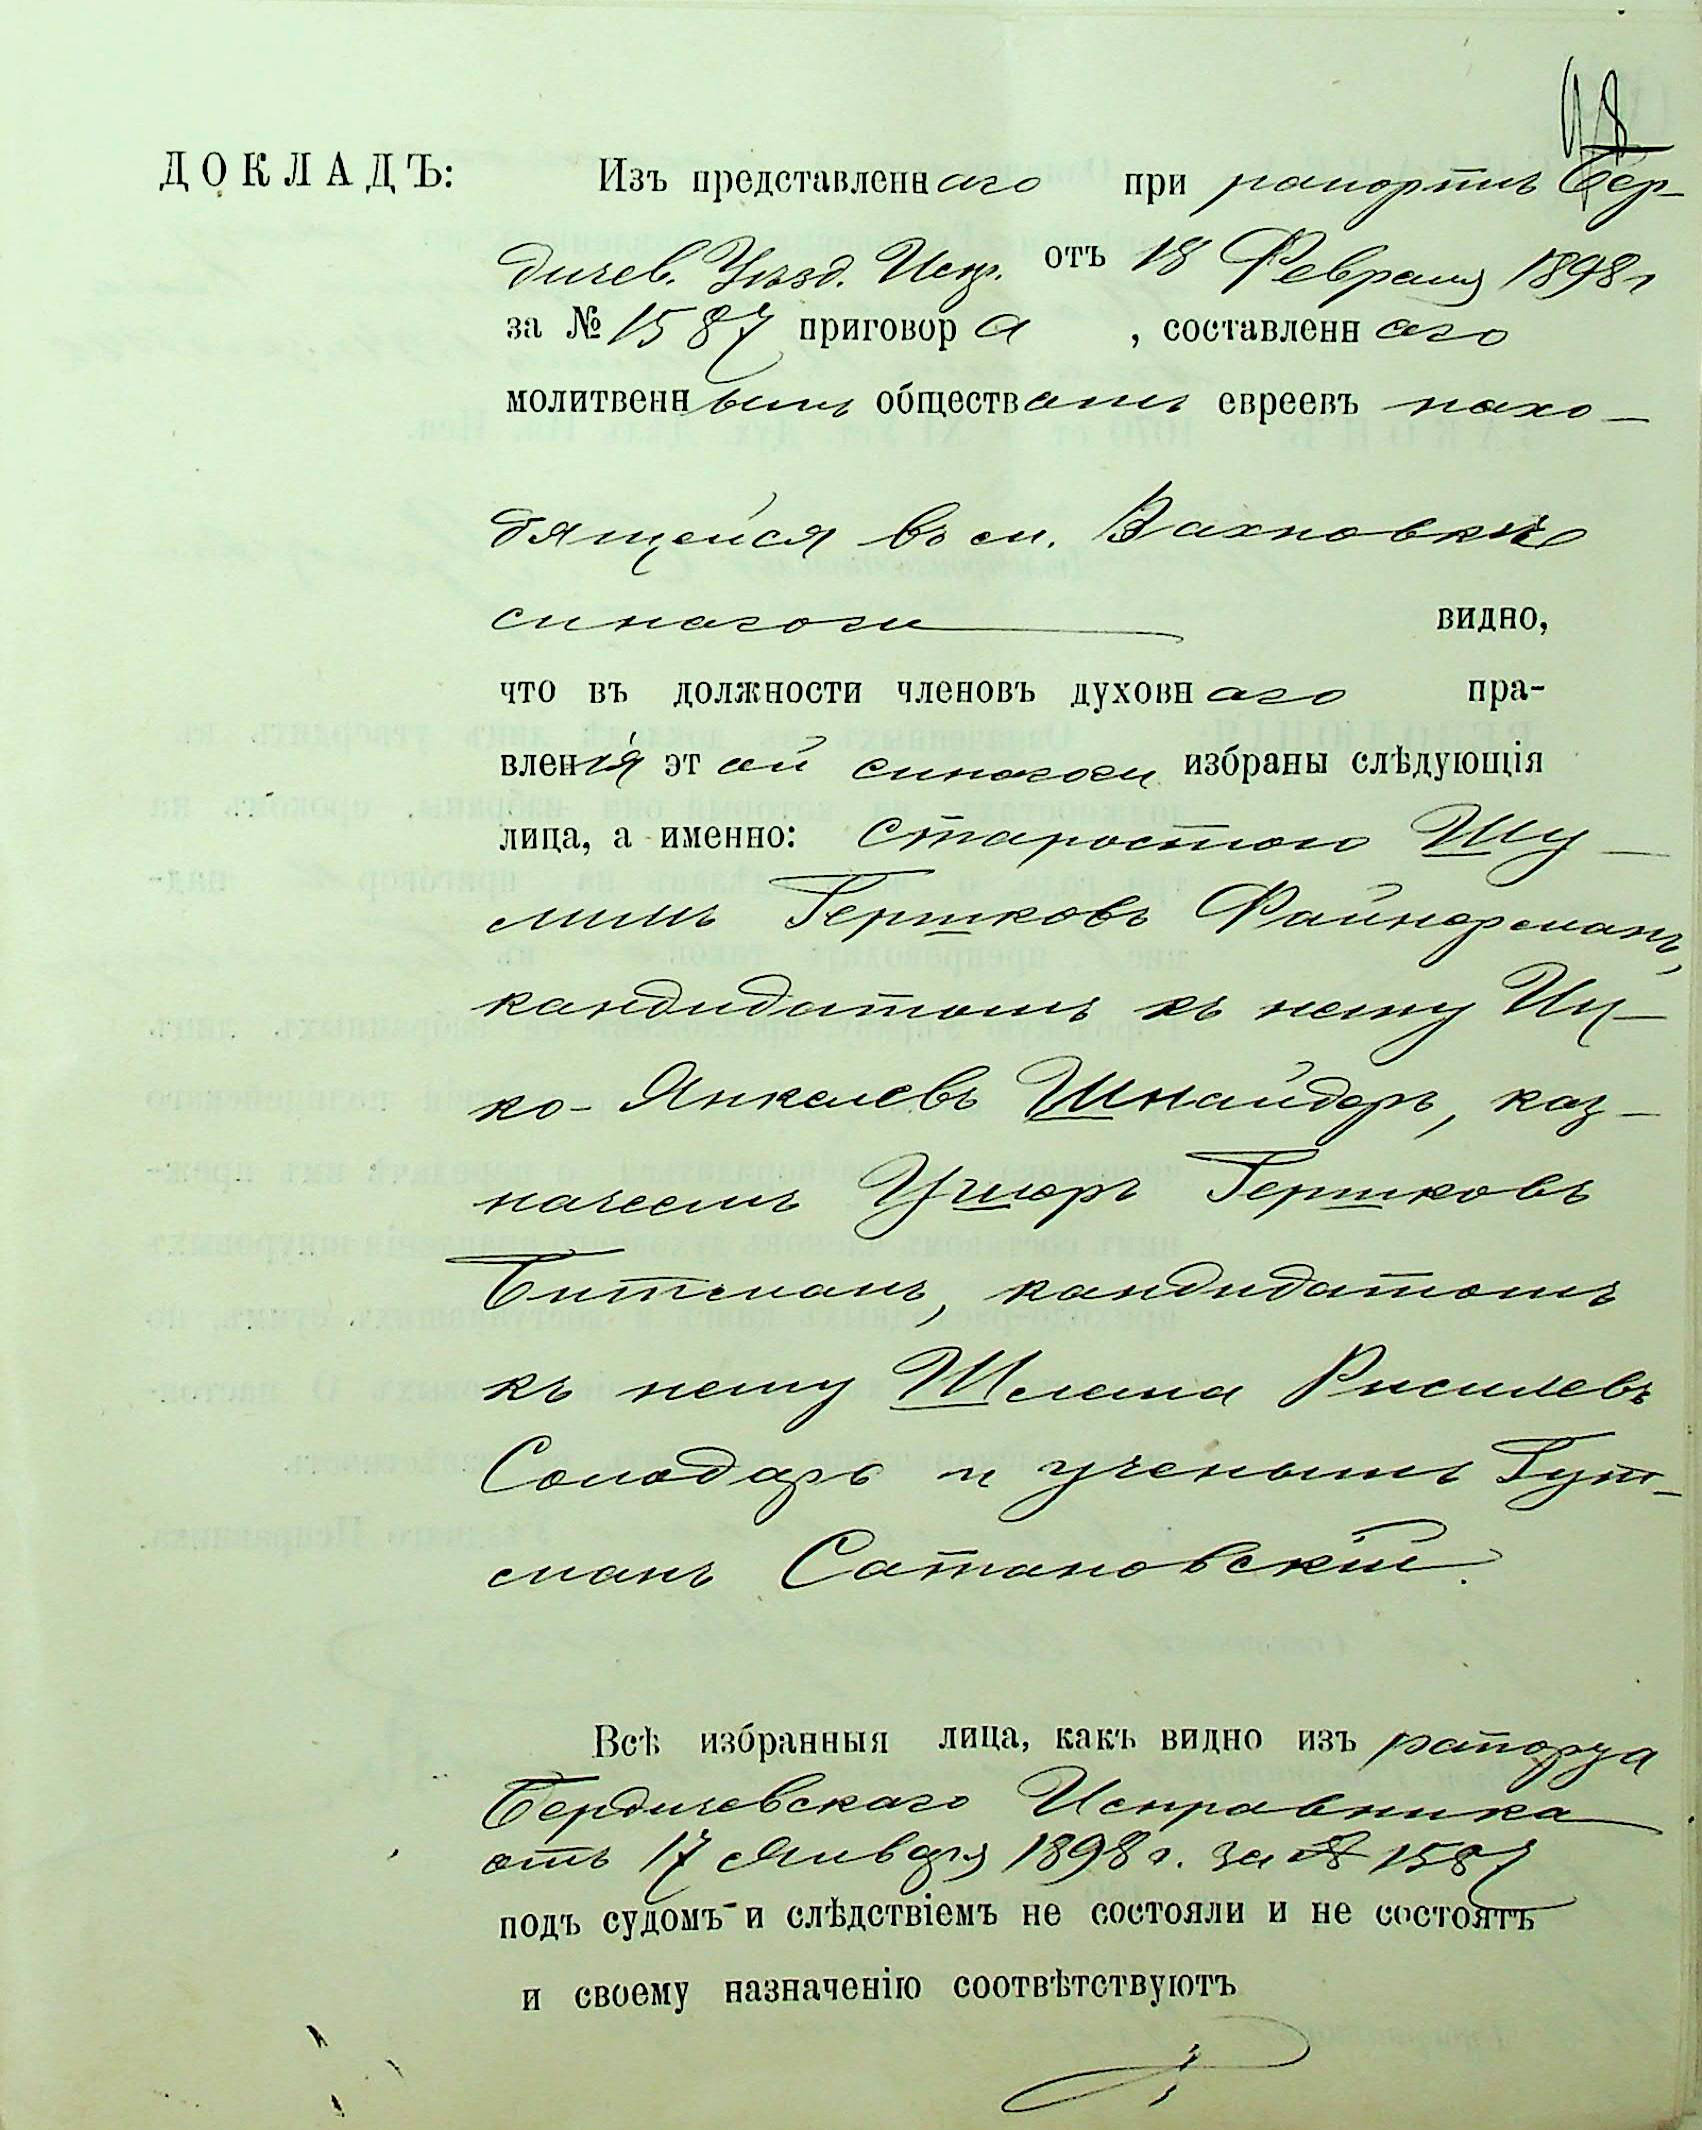 48
ДОКЛАДЪ: Изъ представленнаго при рапортѣ Бер-
дичев. Уѣзд. Испр. отъ 18 Февраля 1898 г
за № 1587 приговора, составленнаго
молитвеннымъ обществомъ евреевъ нахо-
дящейся въ м. Вахновкѣ
синагоги видно,
что въ должности членовъ духовнаго пра-
вленія этой синагоги избраны слѣдующія
лица, а именно: старостою Шу-
лимъ Гершковъ Файнерманъ,
кандидатомъ къ нему Иц-
ко-Янкелевъ Шнайдеръ, каз-
начеемъ Ушеръ Гершковъ
Битманъ, кандидатомъ
къ нему Шлема Рисилевъ
Солодарь и ученымъ Гут-
манъ Сатановскій.
Всѣ избранныя лица, какъ видно изъ рапорта
Бердичевскаго Исправника
отъ 17 Января 1898 г. за № 1587
подъ судомъ и слѣдствіемъ не состояли и не состоятъ
и своему назначенію соотвѣтствуютъ